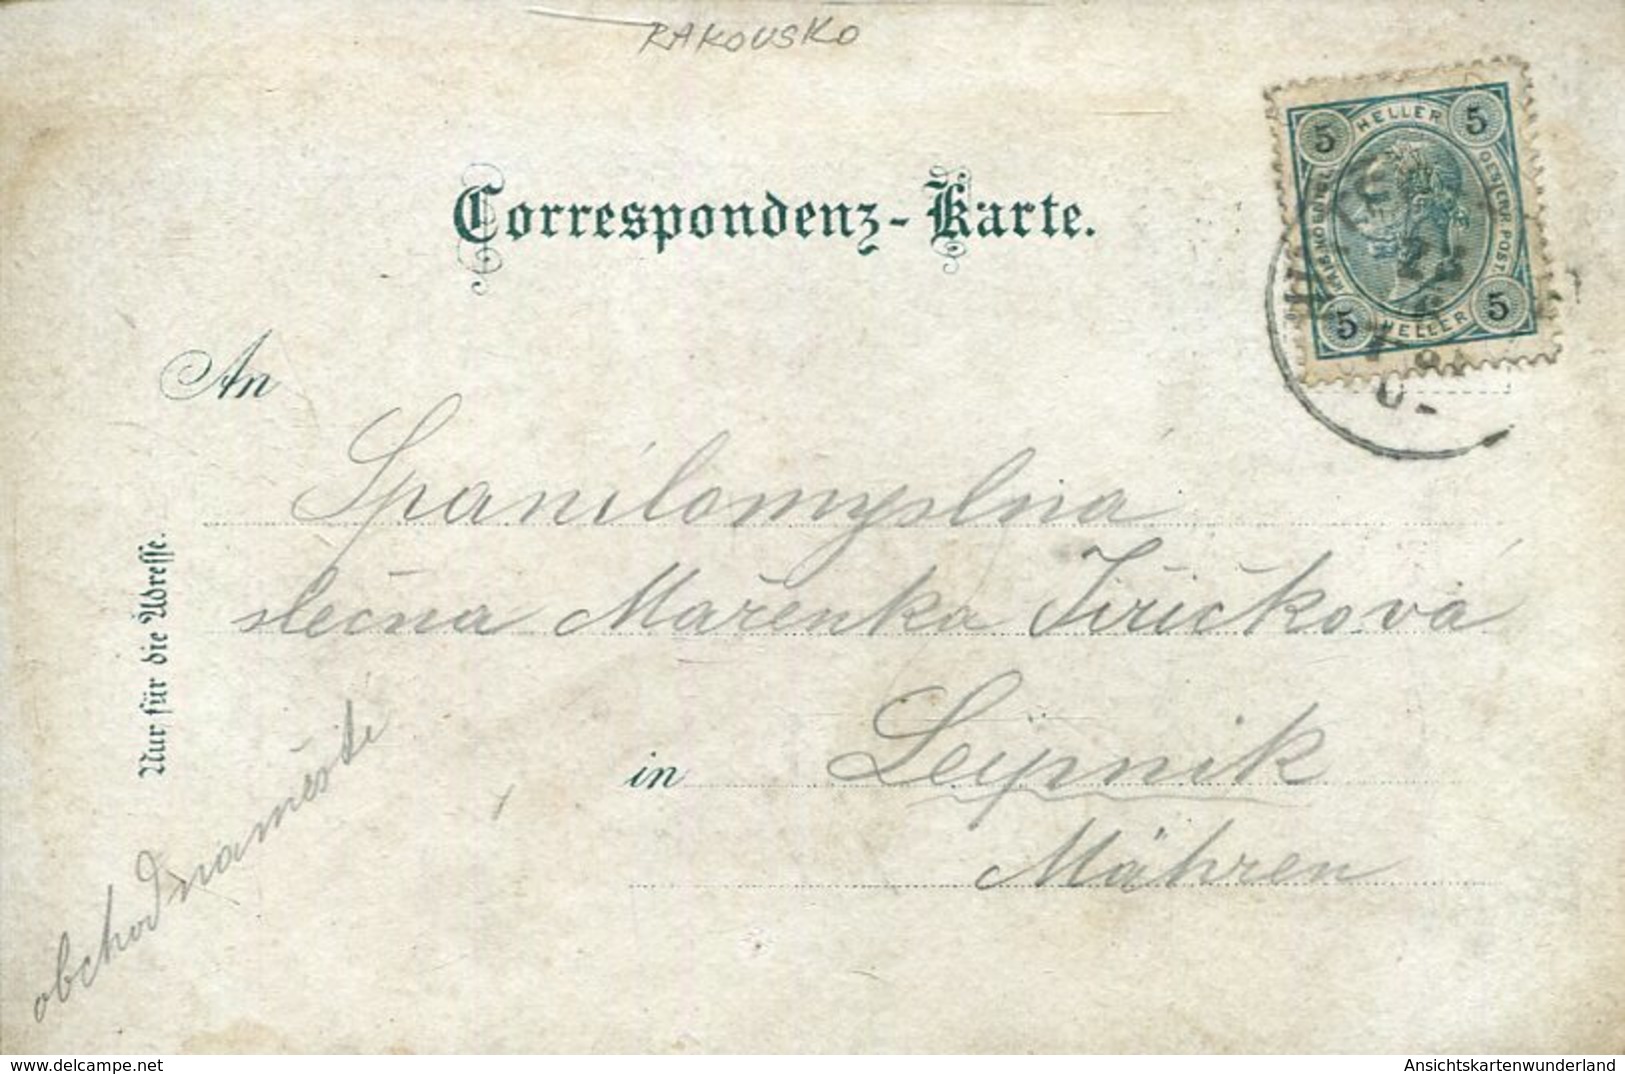 RAKOUSKO
Correspondenz-Karte.
5 HELLER 5
5 HELLER 5
22
An
Spanílomyslná
slečna Mařenka Jiříčková
in Leipnik
Mähren
Nur für die Adresse.
obchod na městě
delcampe.net
Ansichtskartenwunderland